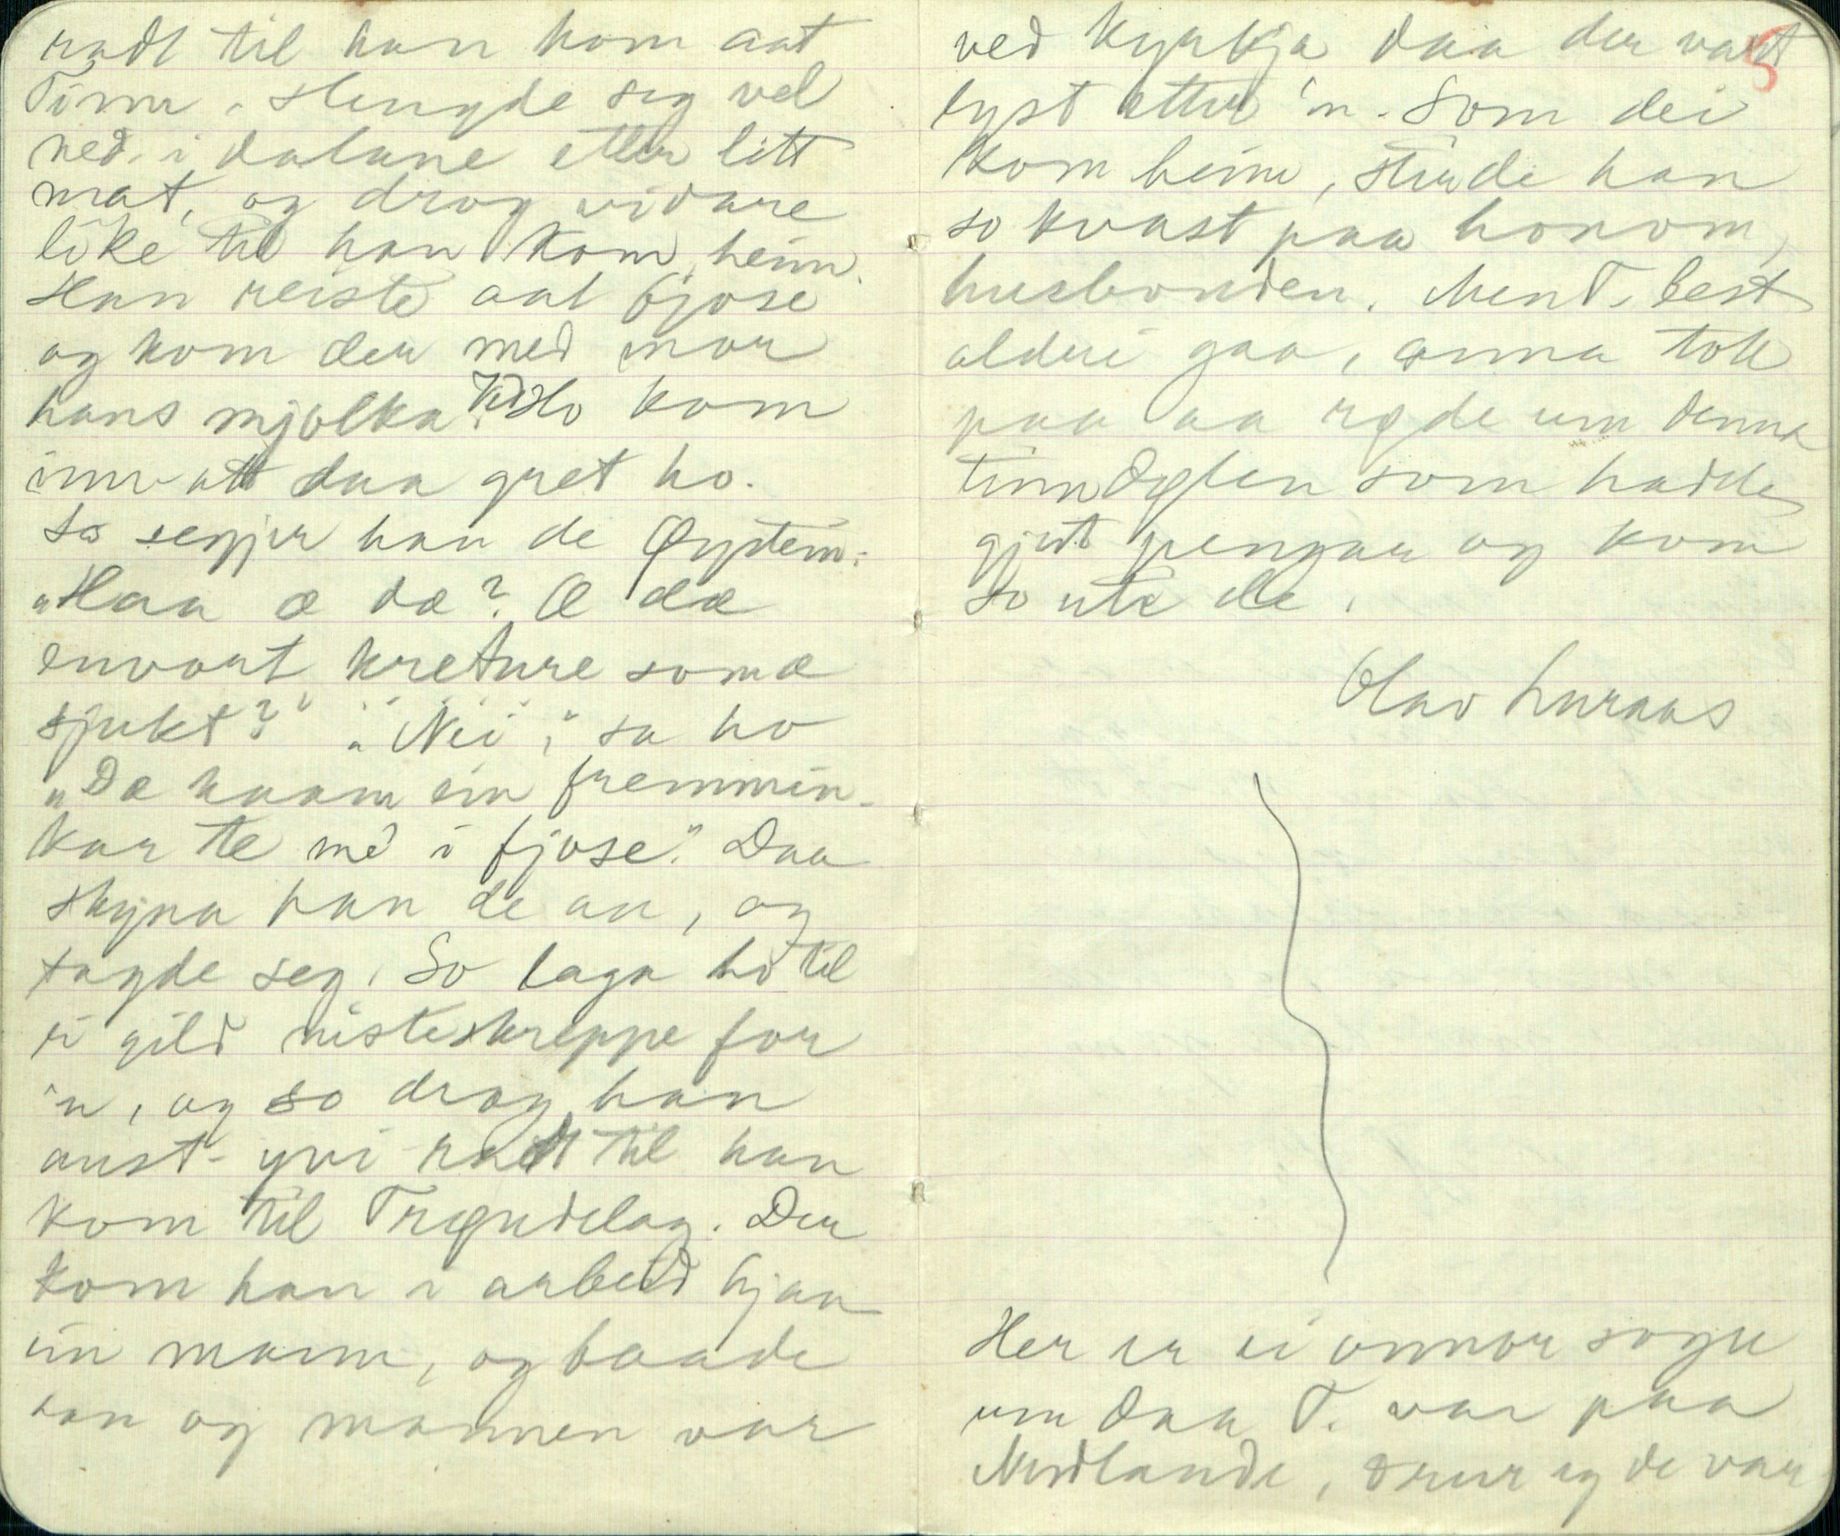 radt til han kom aat
Tinn. Slengde seg vel
ned i dalane etter litt
mat, og drog vidare
like til han kom heim.
Han reiste aat fjose
og kom der med mor
hans mjølka. Ho kom
inn att daa gret ho.
So segjer han de Øystein:
"Haa æ dæ? Æ dæ
envort kreture som æ
sjukt?" "Nei", sa ho
"Dæ kaam ein fremmin-
kar te me i fjose." Daa
skyna han de an, og
tagde seg. So laga ho til
ei gild nisteskreppe for
'n, og so drog han
aust-yvi radt til han
kom til Trøndelag. Der
kom han i arbeid hjaa
ein mann, og baade
han og mannen var
ved kyrkja daa der vart
5
lyst etter 'n. Som dei
kom heim, stirde han
so kvast paa honom,
husbonden. Men T. lest
aldri gaa, anna tok
paa aa røde um denne
tinndølen som hadde
gjort pengar og kom
so ut i de.
Olav Luraas
Her er ei onnor sogu
um daa T. var paa
Nordlande, trur eg de var